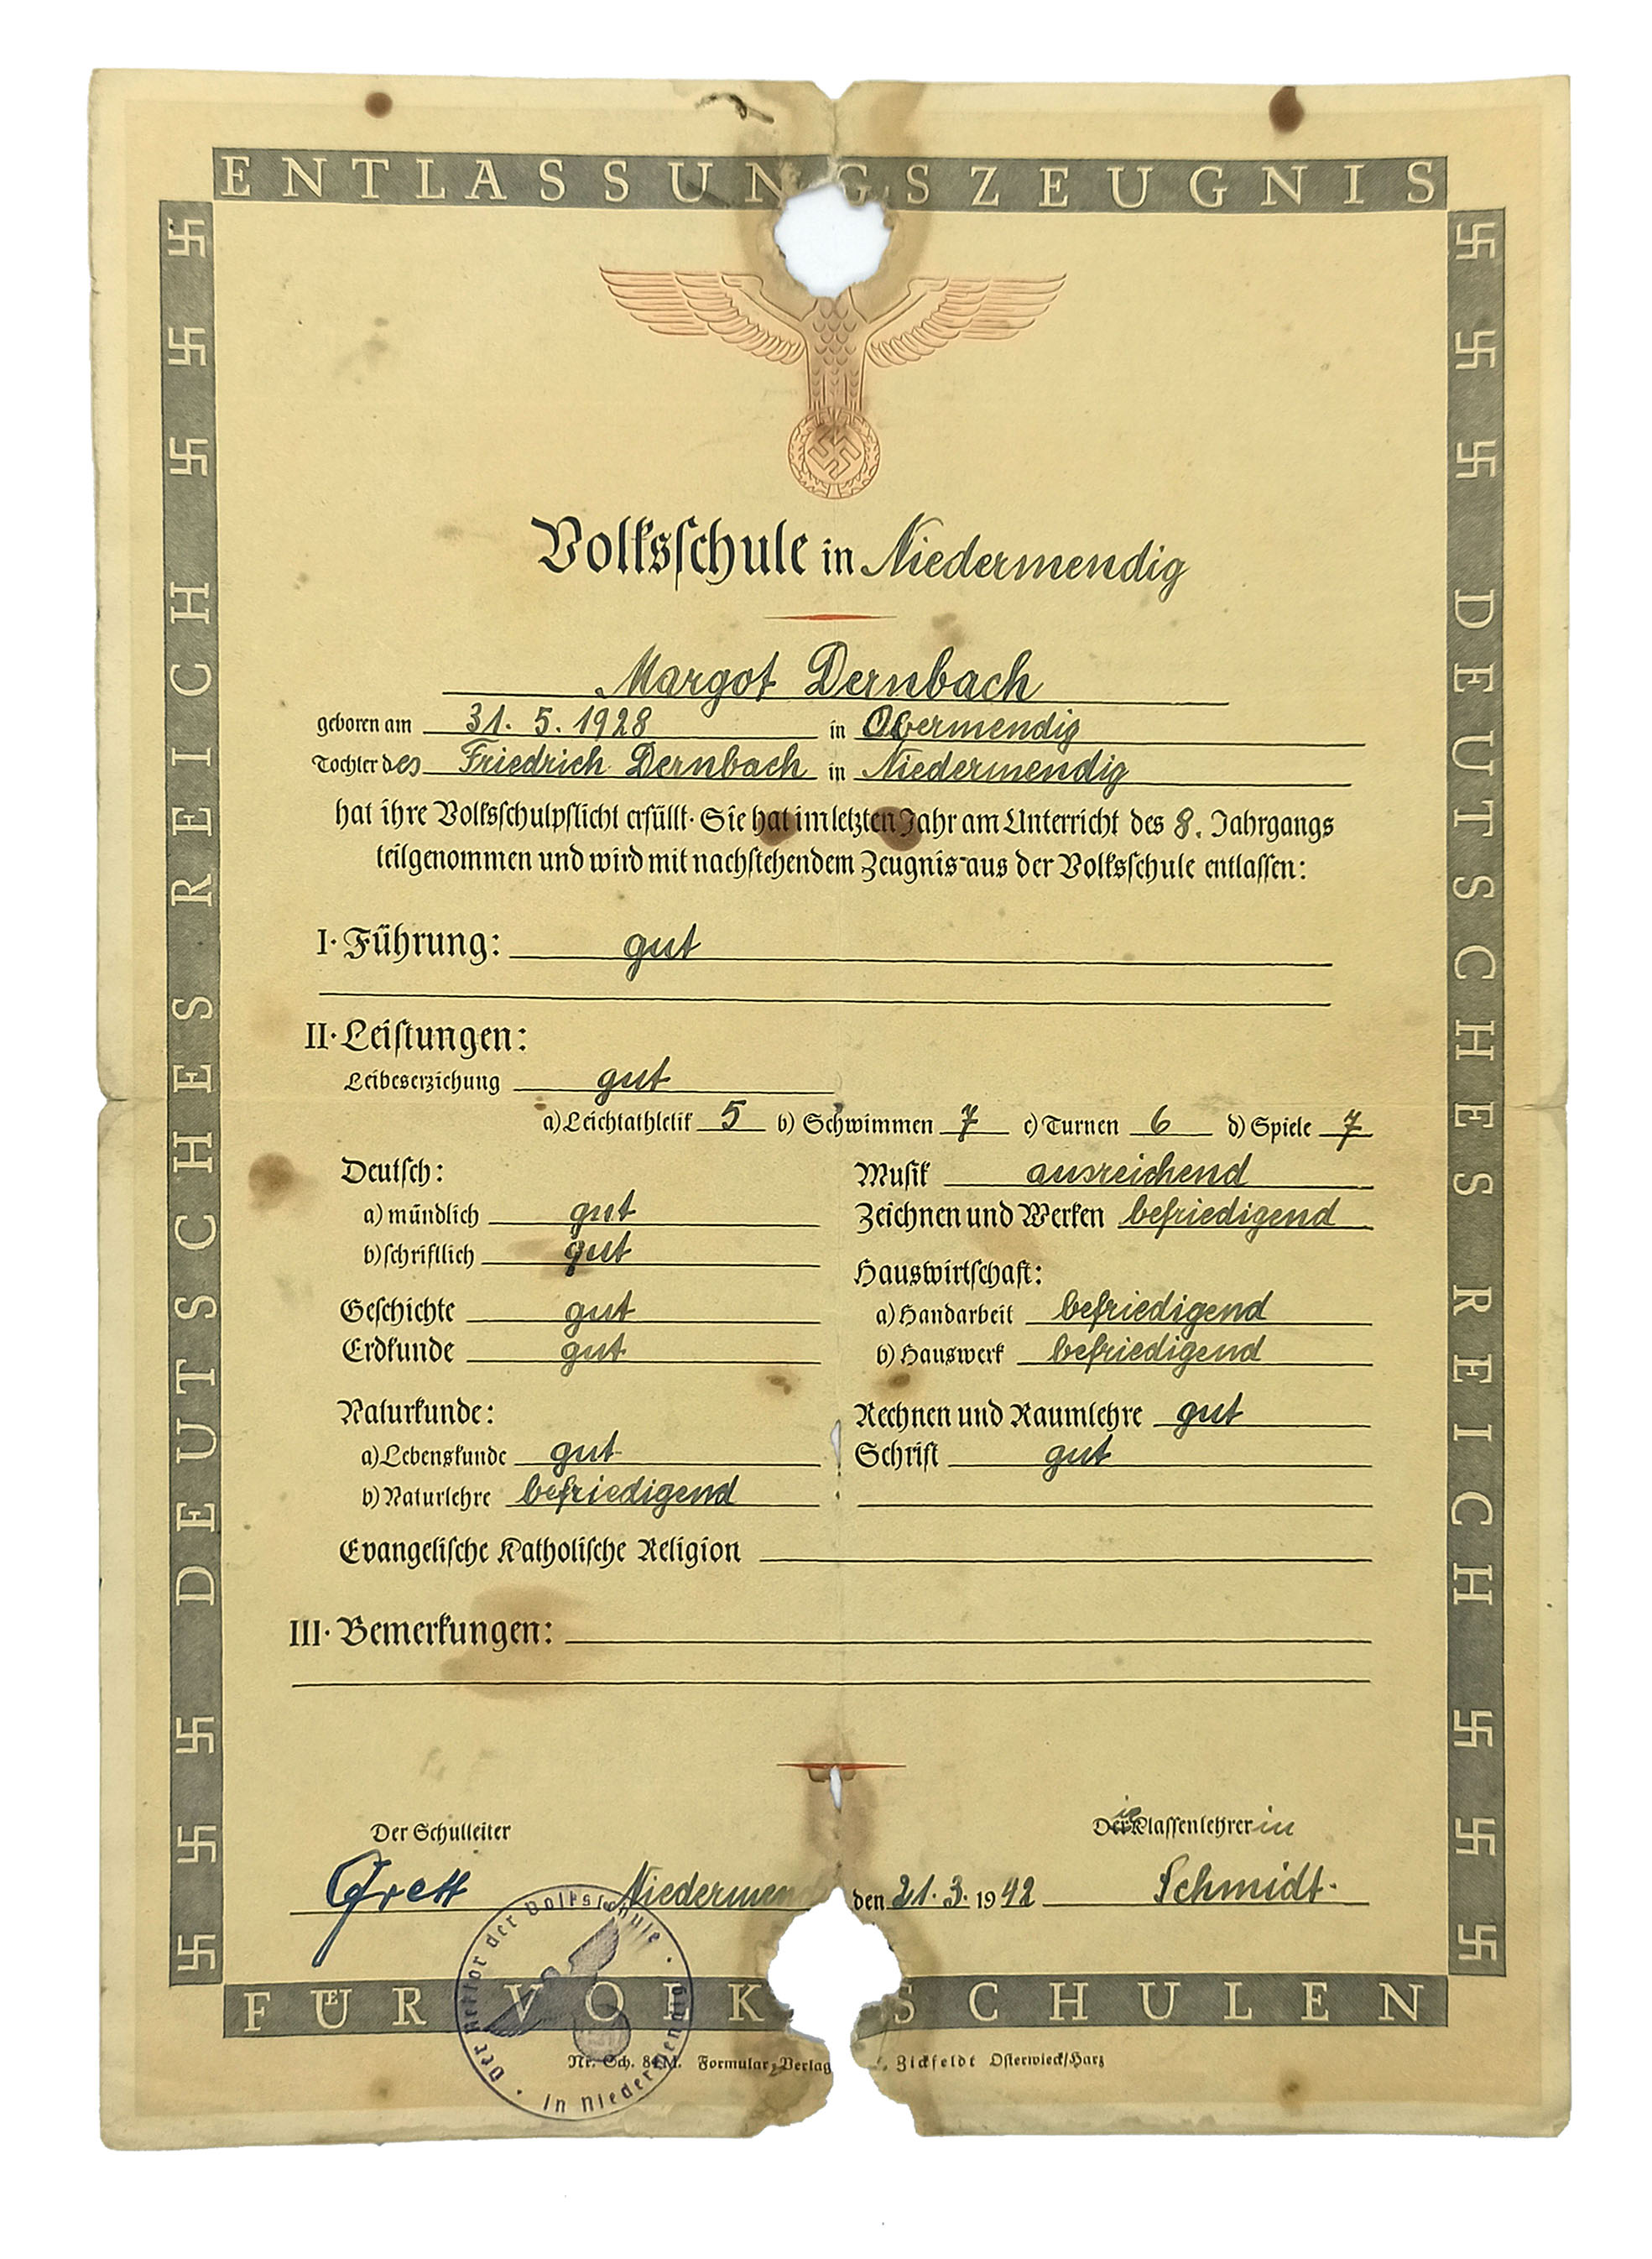 ENTLASSUNGSZEUGNIS
DEUTSCHES REICH
DEUTSCHES REICH
Volksschule in Niedermendig
Margot Dernbach
geboren am 31. 5. 1928 in Obermendig
Tochter des Friedrich Dernbach in Niedermendig
hat ihre Volksschulpflicht erfüllt. Sie hat im letzten Jahr am Unterricht des 8. Jahrgangs
teilgenommen und wird mit nachstehendem Zeugnis aus der Volksschule entlassen:
I. Führung: gut
II. Leistungen:
Leibeserziehung gut
a) Leichtathletik 5 b) Schwimmen 7 c) Turnen 6 d) Spiele 7
Deutsch:
a) mündlich gut
b) schriftlich gut
Geschichte gut
Erdkunde gut
Naturkunde:
a) Lebenskunde gut
b) Naturlehre befriedigend
Musik ausreichend
Zeichnen und Werken befriedigend
Hauswirtschaft:
a) Handarbeit befriedigend
b) Hauswerk befriedigend
Rechnen und Raumlehre gut
Schrift gut
Evangelische Katholische Religion
III. Bemerkungen:
Der Schulleiter
Die Klassenlehrerin
Niedermend den 21. 3. 1942 Schmidt.
Der Rektor der Volksschule
in Niedermendig
FUER VOLKSCHULEN
Nr. Sch. Formular-Verlag Zickfeldt Osterwieck/Harz